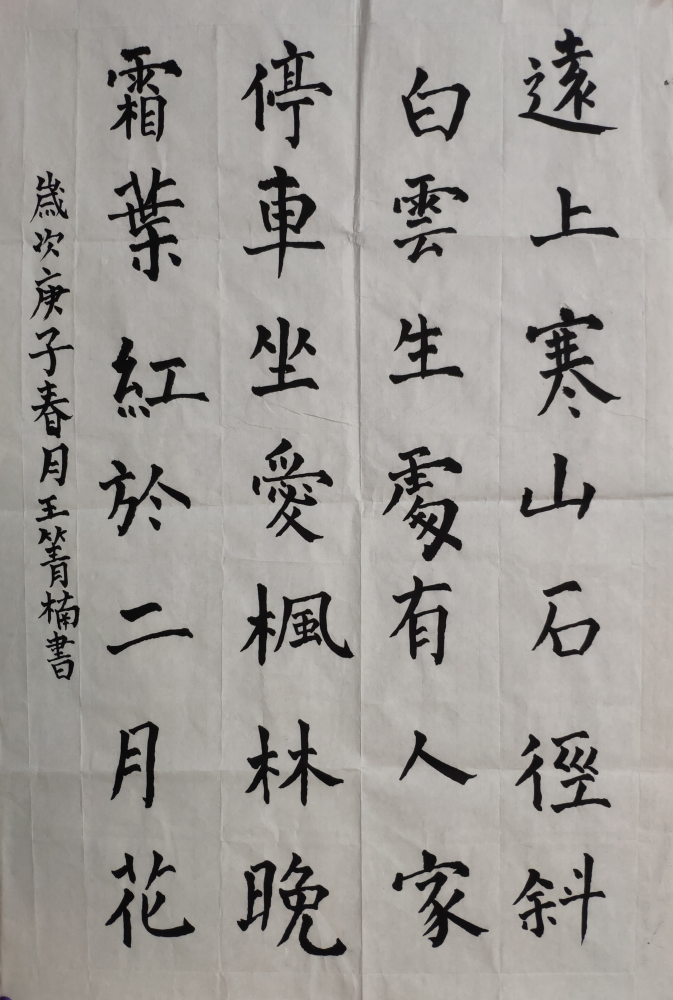 遠上寒山石徑斜
白雲生處有人家
停車坐愛楓林晚
霜葉紅於二月花
歲次庚子春月王箐楠書